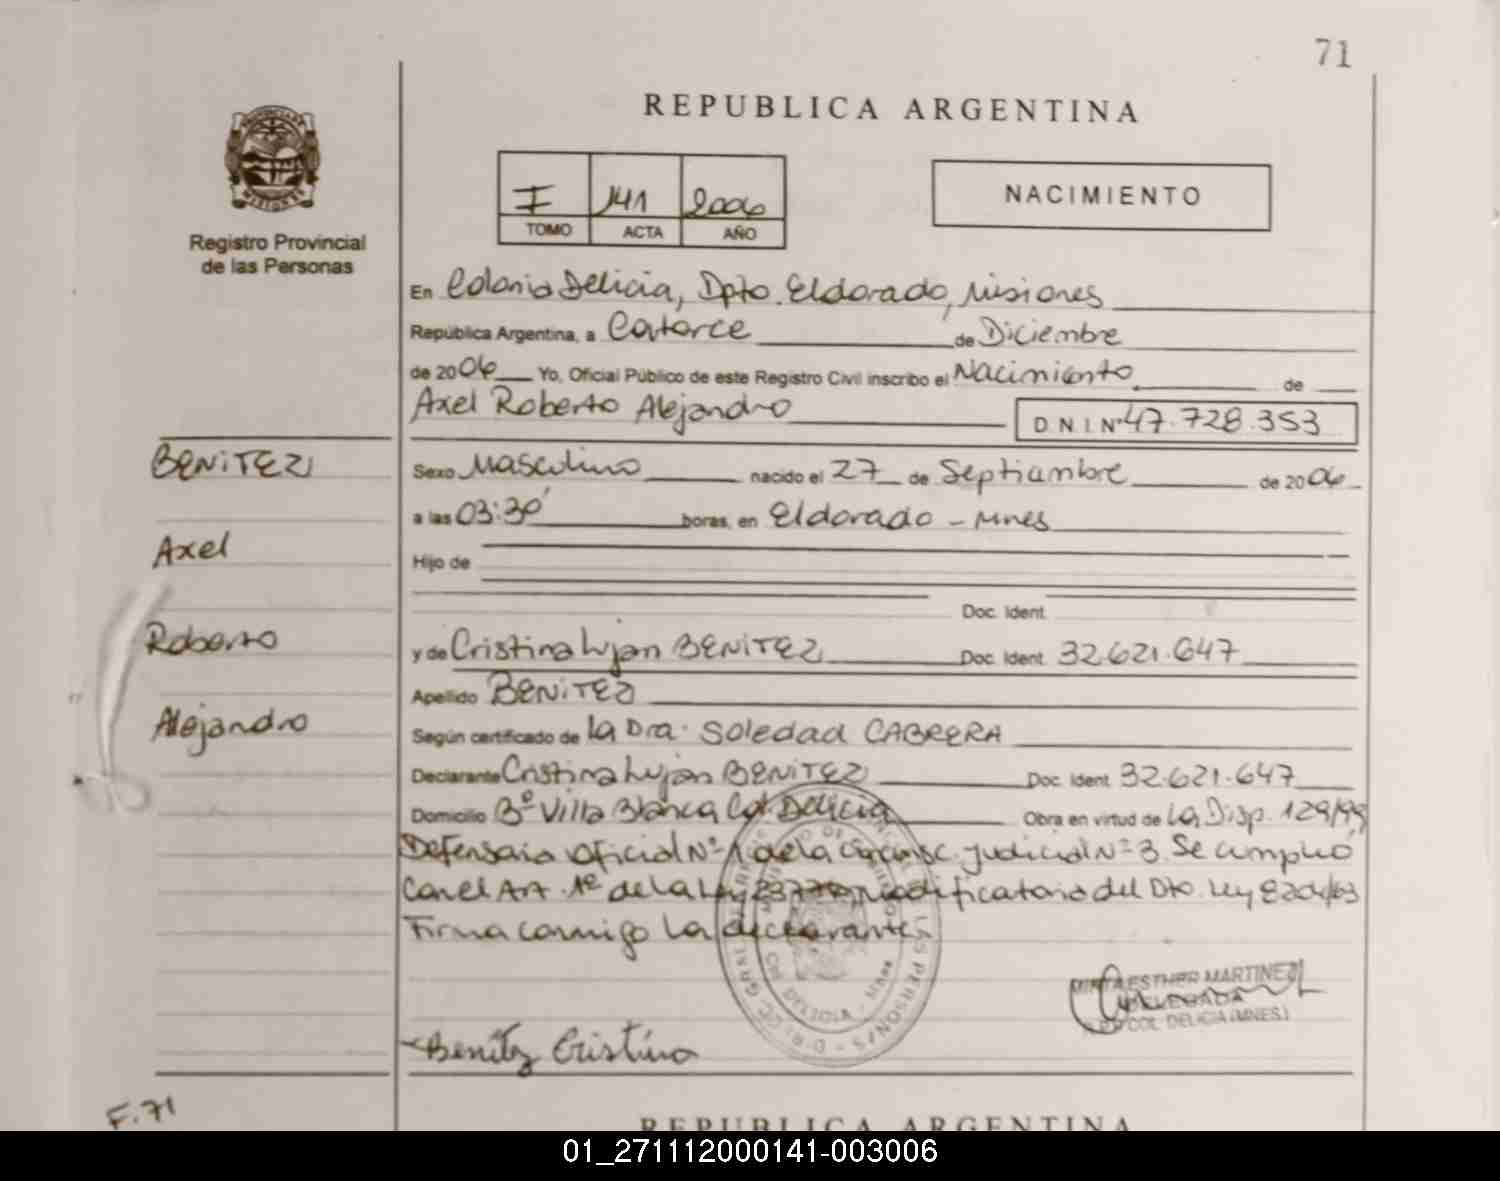 71
REPUBLICA ARGENTINA
I 141 2006
TOMO ACTA AÑO
NACIMIENTO
Registro Provincial
de las Personas
En Colonia Delicia, Dpto. Eldorado, Misiones
República Argentina, a Catorce de Diciembre
de 2006 Yo, Oficial Público de este Registro Civil inscribo el Nacimiento de
Axel Roberto Alejandro D.N.I.Nº 47.728.353
BENITEZ
Axel
Roberto
Alejandro
Sexo Masculino nacido el 27 de Septiembre de 2006
a las 03:30 horas, en Eldorado - Mnes
Hijo de
Doc. Ident.
y de Cristina Lujan BENITEZ Doc. Ident. 32.621.647
Apellido BENITEZ
Según certificado de la Dra. Soledad CABRERA
Declarante Cristina Lujan BENITEZ Doc. Ident. 32.621.647
Domicilio Bº Villa Blanca Col. Delicia Obra en virtud de La Disp. 129/99
Defensoria Oficial Nº 1 de la circunsc. Judicial Nº 3. Se cumplió
con el Art. 1º de la Ley modificatoria del Dto. Ley
Firma conmigo la declarante.
MIRTA ESTHER MARTINEZ
DELEGADA
COL. DELICIA (MNES)
Benitez Cristina
F. 71
REPUBLICA ARGENTINA
01_271112000141-003006